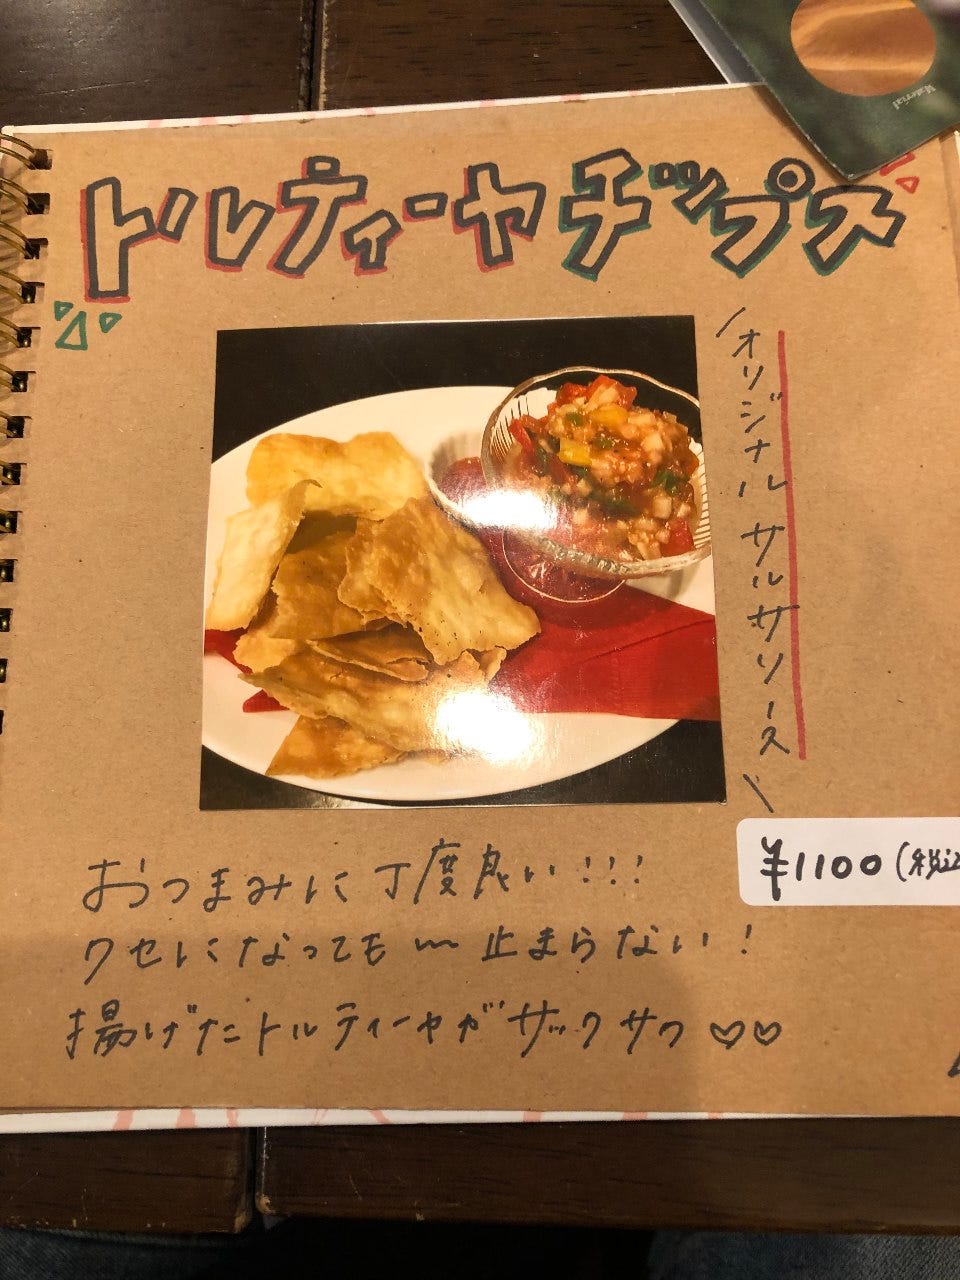 Material
トルティーヤチップス
オリジナルサルサソース
¥1100(税込
おつまみに丁度良い!!!
クセになっても〰止まらない!
揚げたトルティーヤがザックサク♡♡